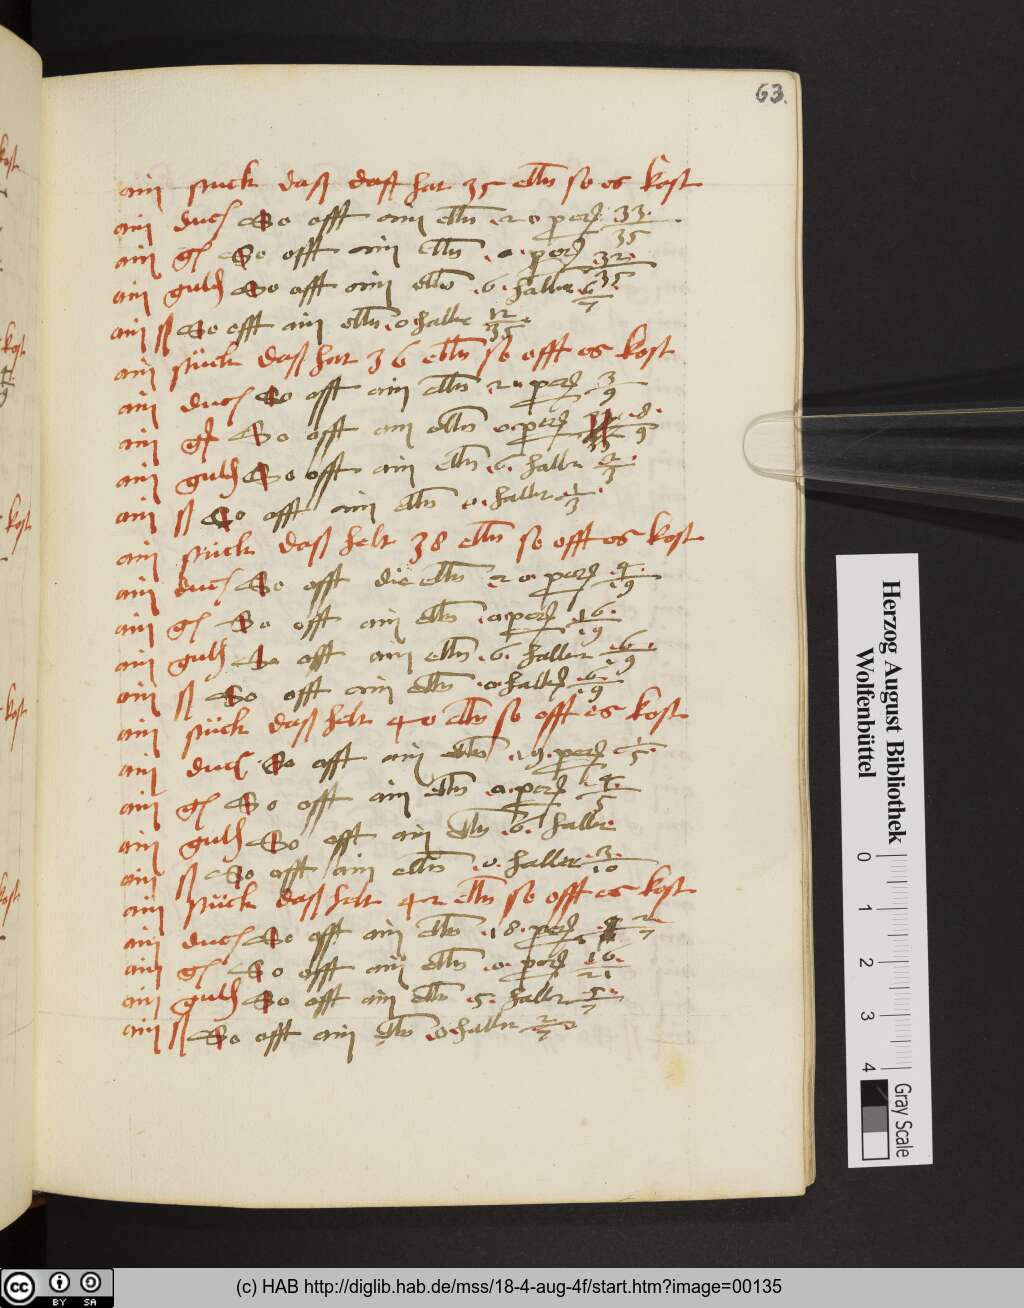 63.
ain stuck daß dast hat 35 elln so es kost
ain duc So offt ain elln 20 perˀ 33/35
ain gſ So offt ain elln 0 perˀ 32/35
ain guldˀ So offt ain elln 6 haller 6/7
ain ß So offt ain elln 0 haller 12/35
ain stück daß hat 36 elln so offt es kost
ain duc So offt ain elln perˀ
ain gſ So offt ain elln 0 perˀ 8/9
ain guldˀ So offt ain elln 6 haller 2/3
ain ß So offt ain elln 0 haller 1/3
ain stück daß helt 38 elln so offt es kost
ain duc So offt die elln 20 perˀ
ain gſ So offt ain elln 0 perˀ 16/19
ain guldˀ So offt ain elln 6 haller
ain ß So offt ain elln 0 haller 6/19
ain stück daß helt 40 elln so offt es kost
ain duc So offt ain elln 19 perˀ 1/5
ain gſ So offt ain elln 0 perˀ 4/5
ain guldˀ So offt ain elln 6 haller
ain ß So offt ain elln 0 haller 3/10
ain stück daß helt 42 elln so offt es kost
ain duc So offt ain elln 18 perˀ 2/7
ain gſ So offt ain elln 0 perˀ 16/21
ain guldˀ So offt ain elln 5 haller 5/7
ain ß So offt ain elln 0 haller 2/7
kost
kost
kost
kost
kost
Herzog August Bibliothek
Wolfenbüttel
0 1 2 3 4
Gray Scale
cc BY SA
(c) HAB http://diglib.hab.de/mss/18-4-aug-4f/start.htm?image=00135